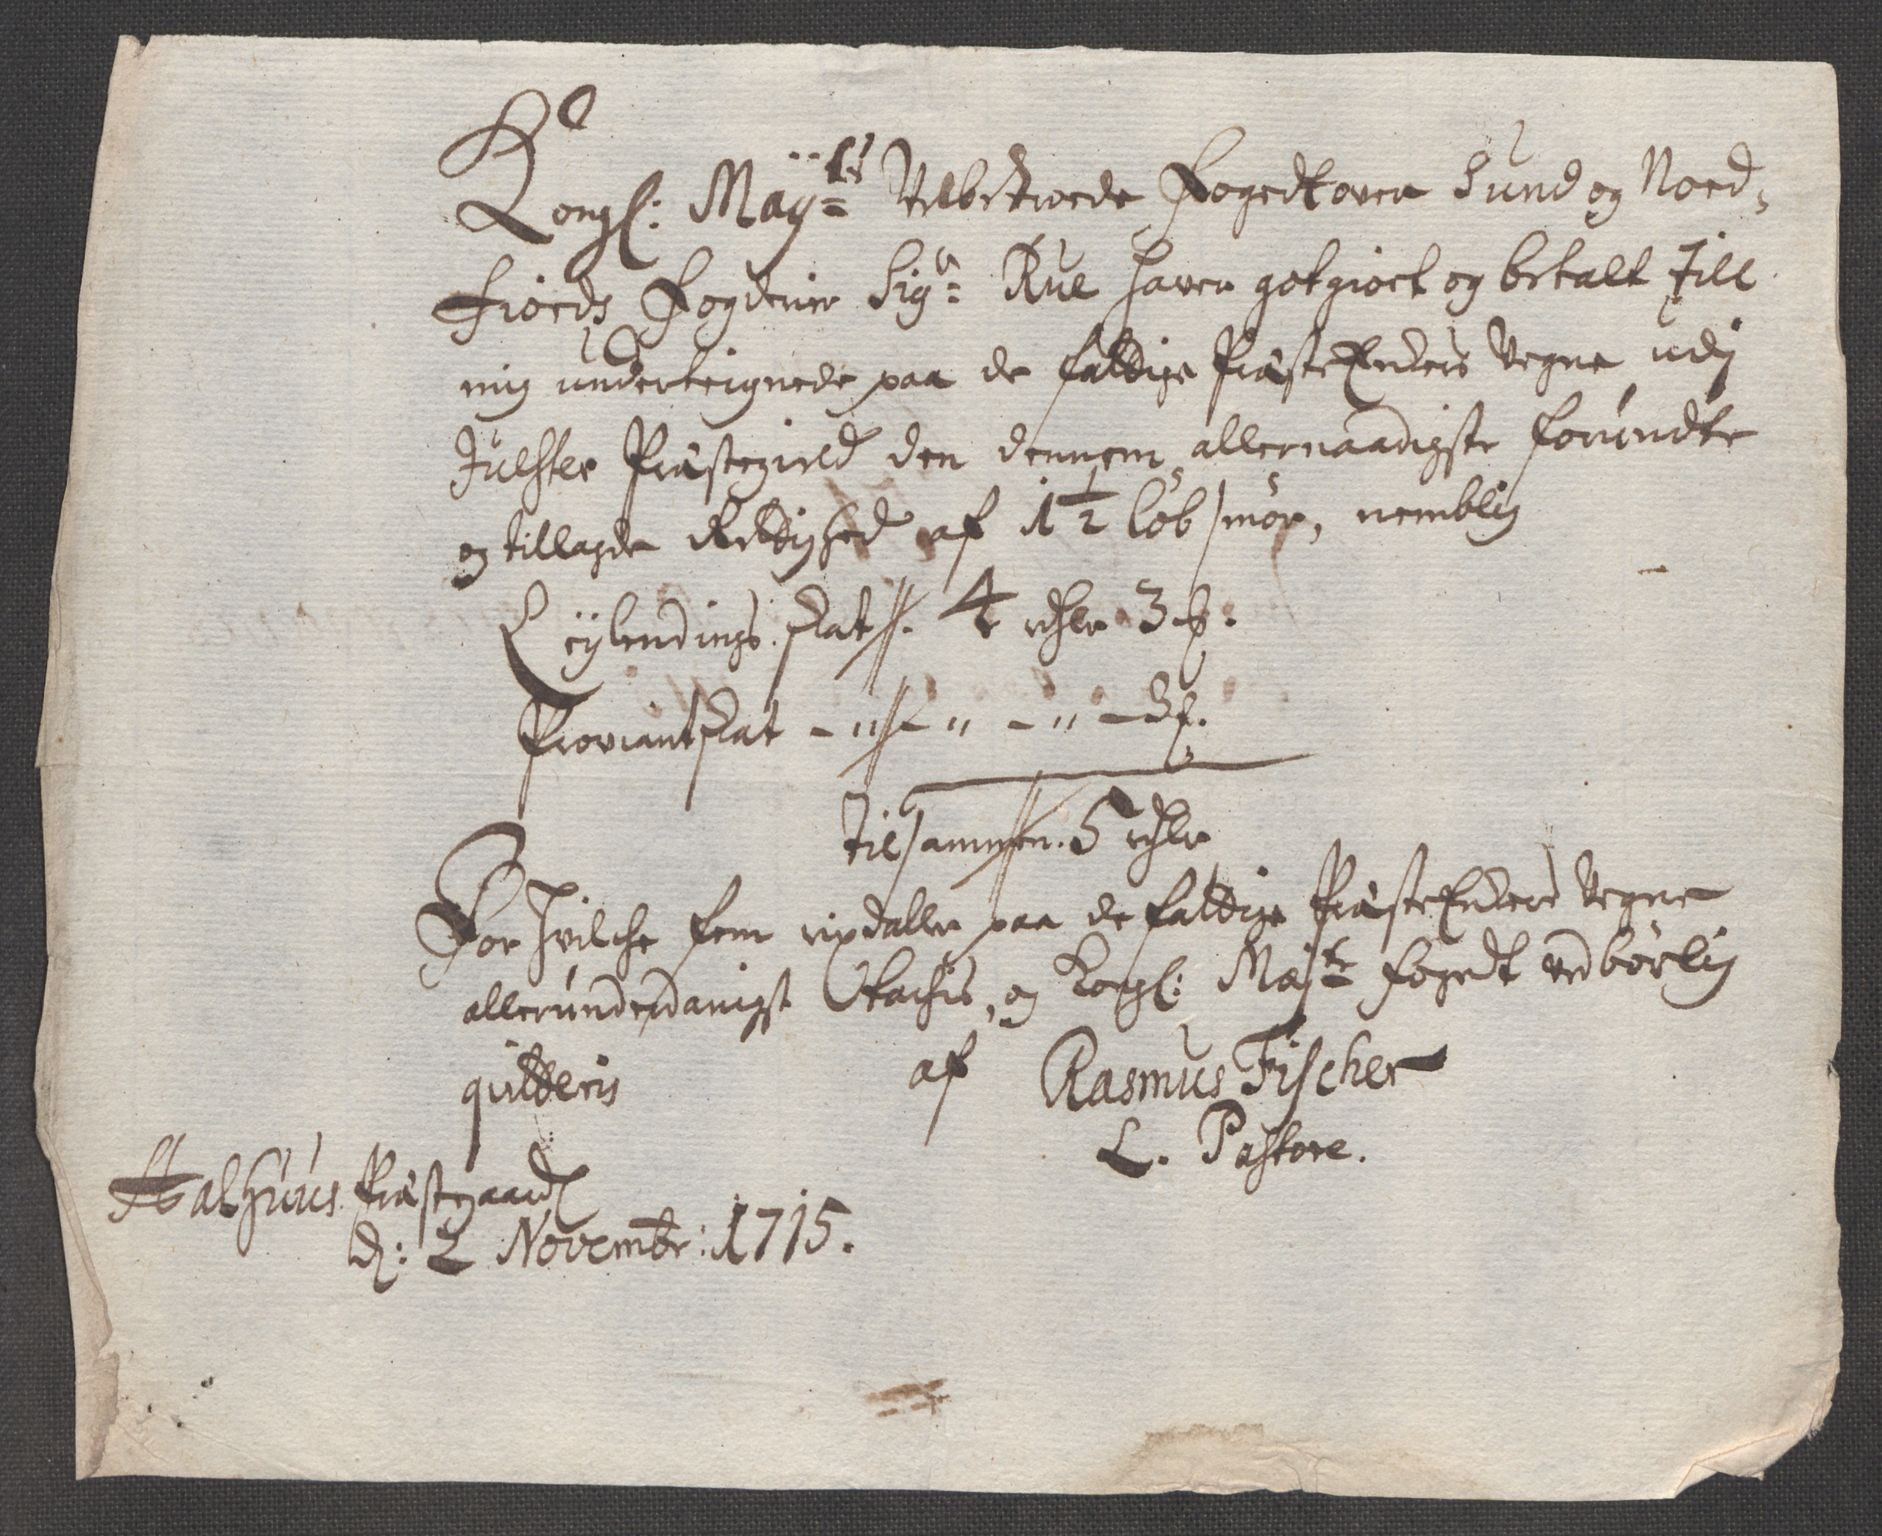 Kongl: Maÿ:ts Velbetroede Fogedt over Sund og Nord-
fiords Fogderier Sigr: Rue haver gotgiort og betalt Till
mig underteignede paa de fattige Præste Enckers Vegne udj
Julster Præstegield den dennem allernaadigste forundte
og tillagde Rettighed af 1½ løb smør, nemblig
Leÿlendings. skat. 4 rdlr 3
Proviantskat - " - " - " -
Tilsammen. 5 rdlr
For hvilche fem rixdaller paa de fattige Præste Enckers Vegne
allerunderdanigst tachis, og Kongl: Maj:ts foget vedbørlig
qvitteris af Rasmus Fischer
L. Pastore.
Aalhuus Præstegaard
d: 2 Novembr: 1715.